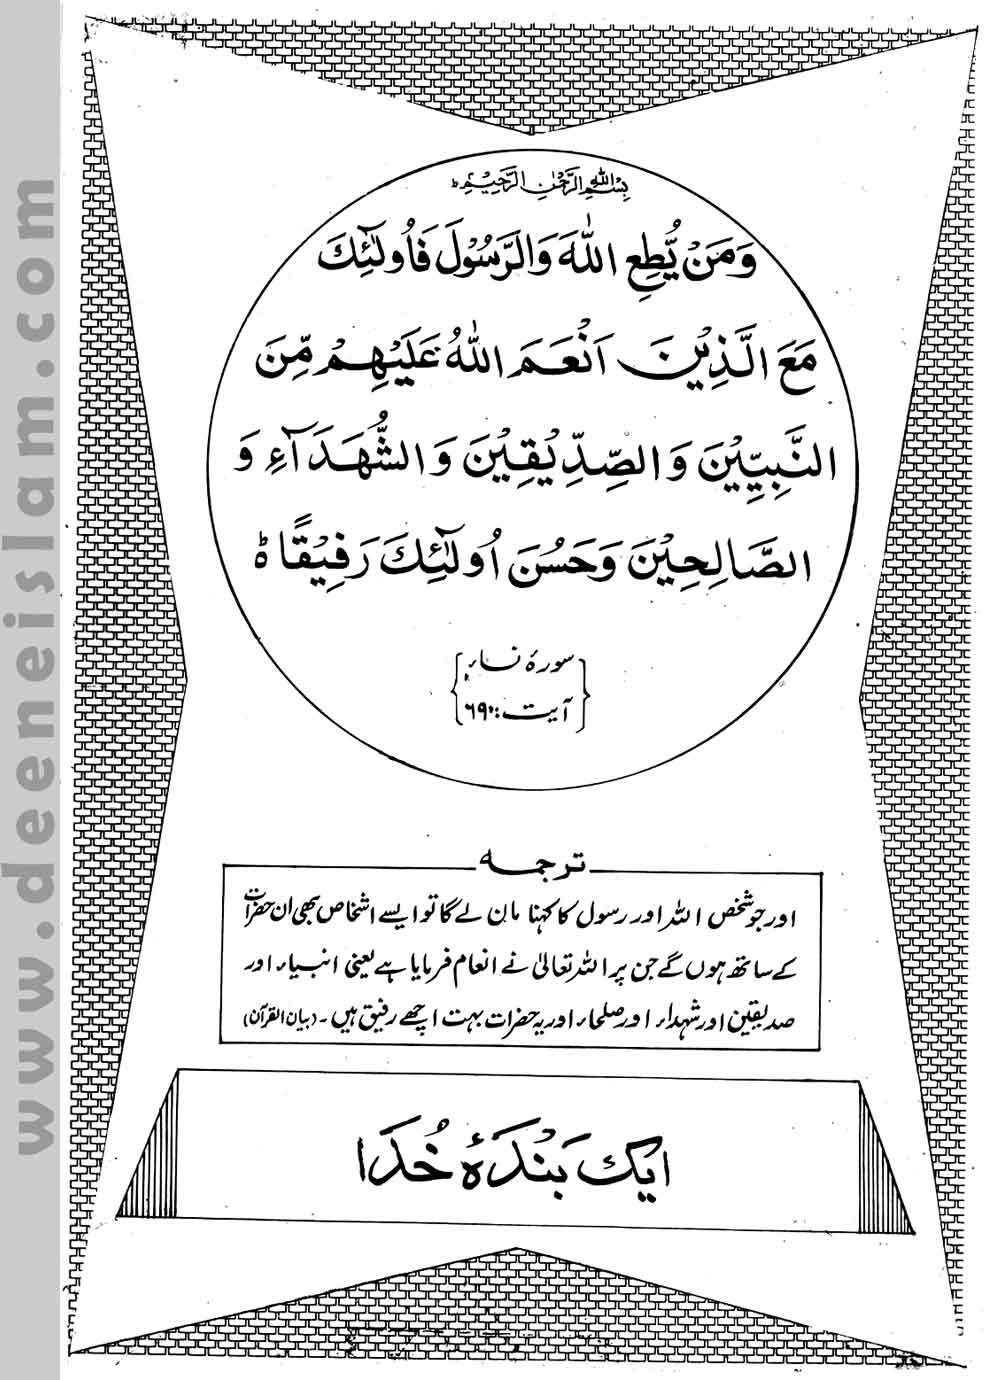 بِسْمِ اللهِ الرَّحْمٰنِ الرَّحِيْمِ ط
وَمَنْ يُّطِعِ اللّٰهَ وَالرَّسُوْلَ فَاُولٰٓئِكَ
مَعَ الَّذِيْنَ اَنْعَمَ اللّٰهُ عَلَيْهِمْ مِّنَ
النَّبِيّٖنَ وَالصِّدِّيْقِيْنَ وَالشُّهَدَآءِ وَ
الصَّالِحِيْنَ وَحَسُنَ اُولٰٓئِكَ رَفِيْقًا ط
سورۂ نساء
آیت: ۶۹
ترجمہ
اور جو شخص اللہ اور رسول کا کہنا مان لے گا تو ایسے اشخاص بھی ان حضرات
کے ساتھ ہوں گے جن پر اللہ تعالیٰ نے انعام فرمایا ہے یعنی انبیاء اور
صدیقین اور شہداء اور صلحاء اور یہ حضرات بہت اچھے رفیق ہیں۔ (بیان القرآن)
ایک بَنْدَۂ خُدَا
www.deeneislam.com